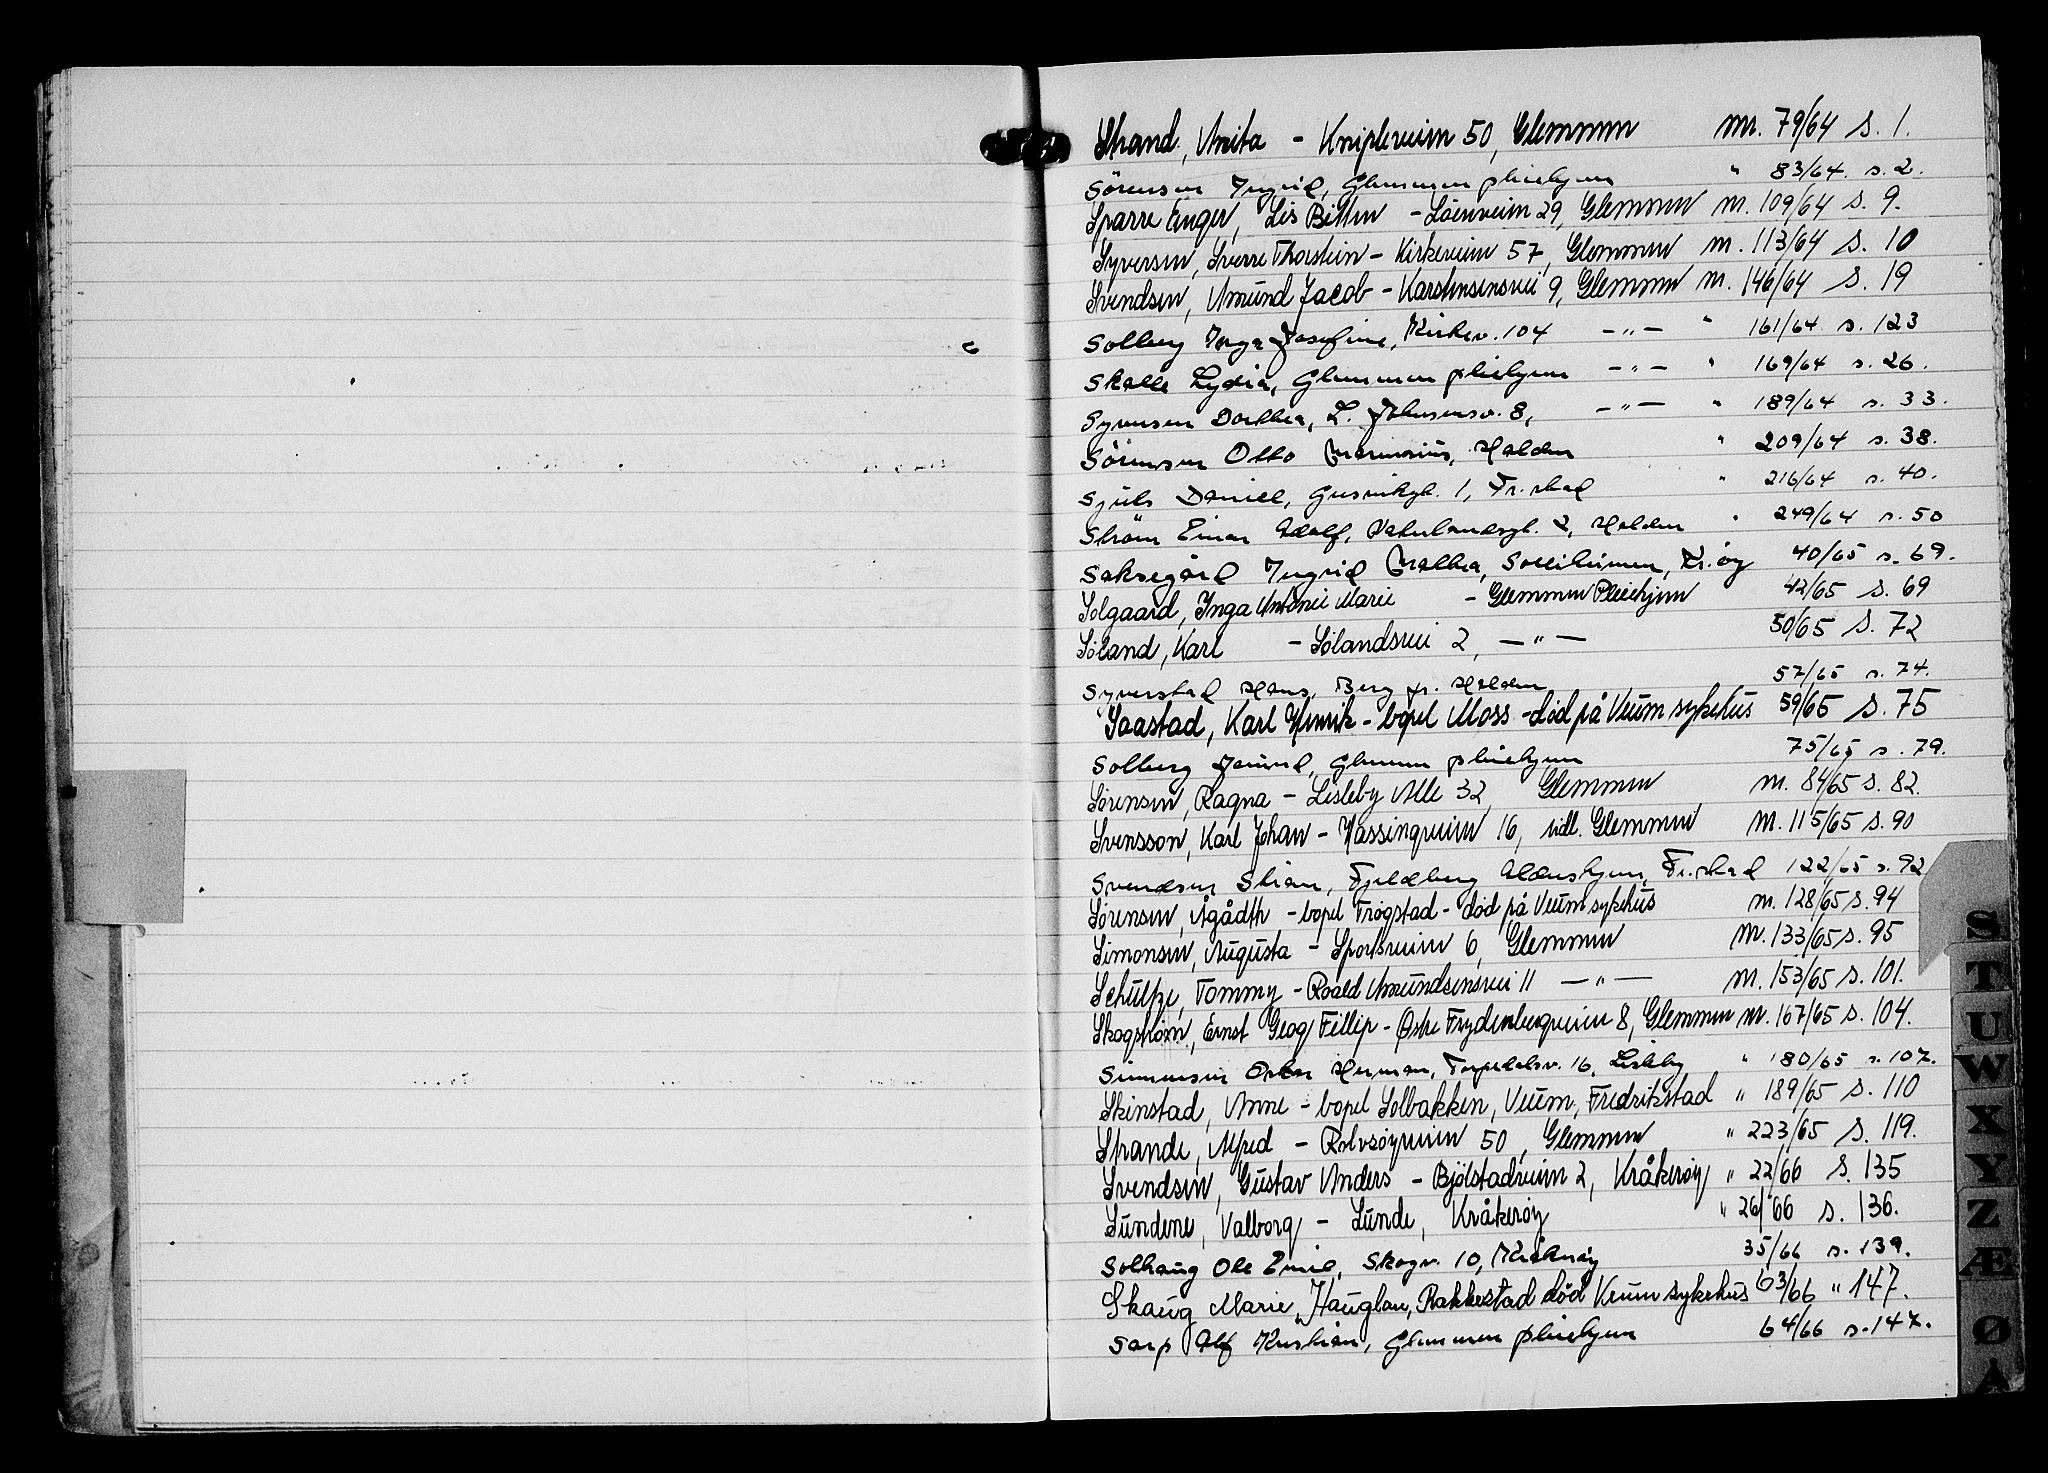 Strand, Anita - Knipleveien 50, Glemmen nr. 79/64 s. 1.
Sörensen Ingrid, Glemmen pleiehjem " 83/64. s. 2.
Sparre Enger, Lis Betten - Löenveien 29, Glemmen nr. 109/64 s. 9.
Syversen, Sverre Thorstein - Kirkeveien 57, Glemmen nr. 113/64 s. 10
Svendsen, Amund Jacob - Karstensensvei 9, Glemmen nr. 146/64 s. 19
Solberg Inga Josefine, Kirkev. 104 - " - " 161/64 s. 123
Skolle Lydia, Glemmen pleiehjem - " - " 169/64 s. 26.
Syversen Dorthea, L. Johnsensv. 8, - " - " 189/64 s. 33.
Sörensen Otto Marinius, Halden " 209/64 s. 38.
Sjuls Daniel, Gusvikgt. 1, Fr.stad " 216/64 s. 40.
Ström Einar Adolf, Vaterlandsgt. 2, Halden " 249/64 s. 50
Saksegård Ingrid Malbea, Solliheimen, Kr.øy 40/65 s. 69.
Solgaard, Inga Antonie Marie - Glemmen Pleiehjem 42/65 s. 69
Söland, Karl - Sölandsvei 2, - " - 50/65 s. 72
Syverstad Hans, Berg pr. Halden 57/65 s. 74.
Saastad, Karl Henrik - bopel Moss - död på Veum sykehus 59/65 s. 75
Solberg Jörund, Glemmen pleiehjem 75/65 s. 79.
Sörensen, Ragna - Lisleby Alle 32 Glemmen nr. 84/65 s. 82.
Svensson, Karl Johan - Hassingveien 16, Glemmen nr. 115/65 s. 90
Svendsen Stian, Fjeldberg Aldershjem, Fr.stad 122/65 s. 92
Sørensen, Ågådth - bopel Trögstad - död på Veum sykehus nr. 128/65 s. 94
Simonsen, Augusta - Sportsveien 6, Glemmen nr. 133/65 s. 95
Schultze, Tommy - Roald Amundsensvei 11 - " - nr. 153/65 s. 101.
Skogström, Ernst Geog Fillip - Østre Frydenbergveien 8, Glemmen nr. 167/65 s. 104.
Simensen Oskar Herman, Torpedalsv. 16, Lisleby " 180/65 s. 107.
Skinstad, Anne - bopel Solbakken, Veum, Fredrikstad " 189/65 s. 110
Strande, Alfred - Rolvsøyveien 50, Glemmen " 223/65 s. 119.
Svendsen, Gustav Anders - Bjölstadveien 2, Kråkerøy " 22/66 s. 135
Sundene, Valborg - Lunde, Kråkerøy " 26/66 s. 136.
Solhaug Ole Emil, Skogv. 10, Kråkerøy 35/66 s. 139.
Skaug Marie, Hauglan, Rakkestad död Veum sykehus 63/66 " 147.
Sarp Alf Kristian, Glemmen pleiehjem 64/66 s. 147.
S
T
U
W
X
Y
Z
Æ
Ø
Å